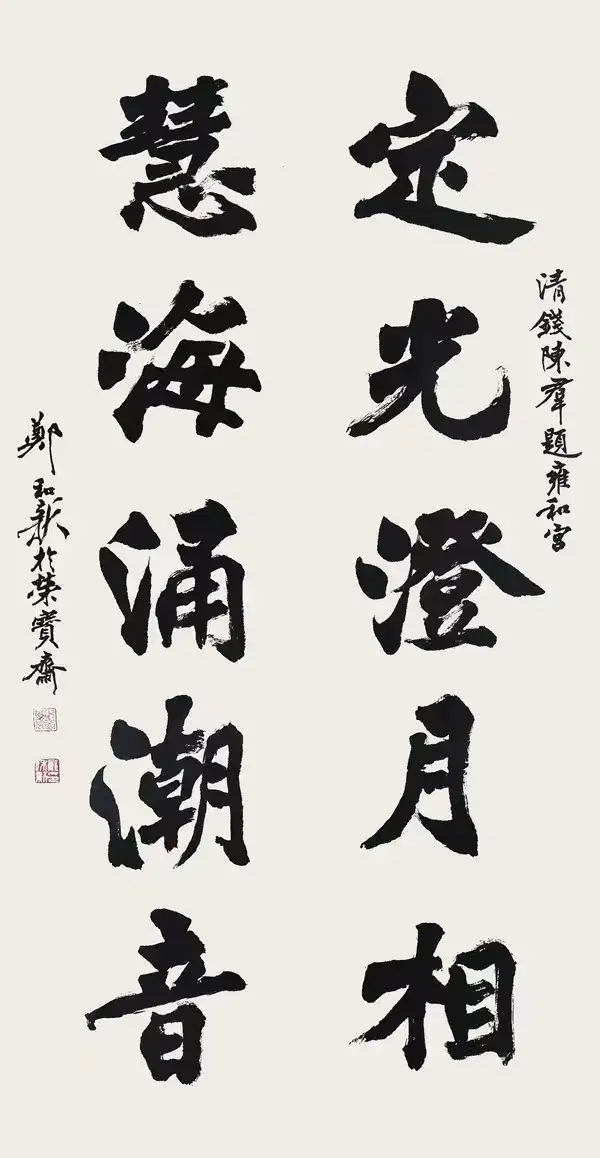 定光澄月相
清錢陳羣題雍和宮
慧海涌潮音
鄭和新於榮寶齋